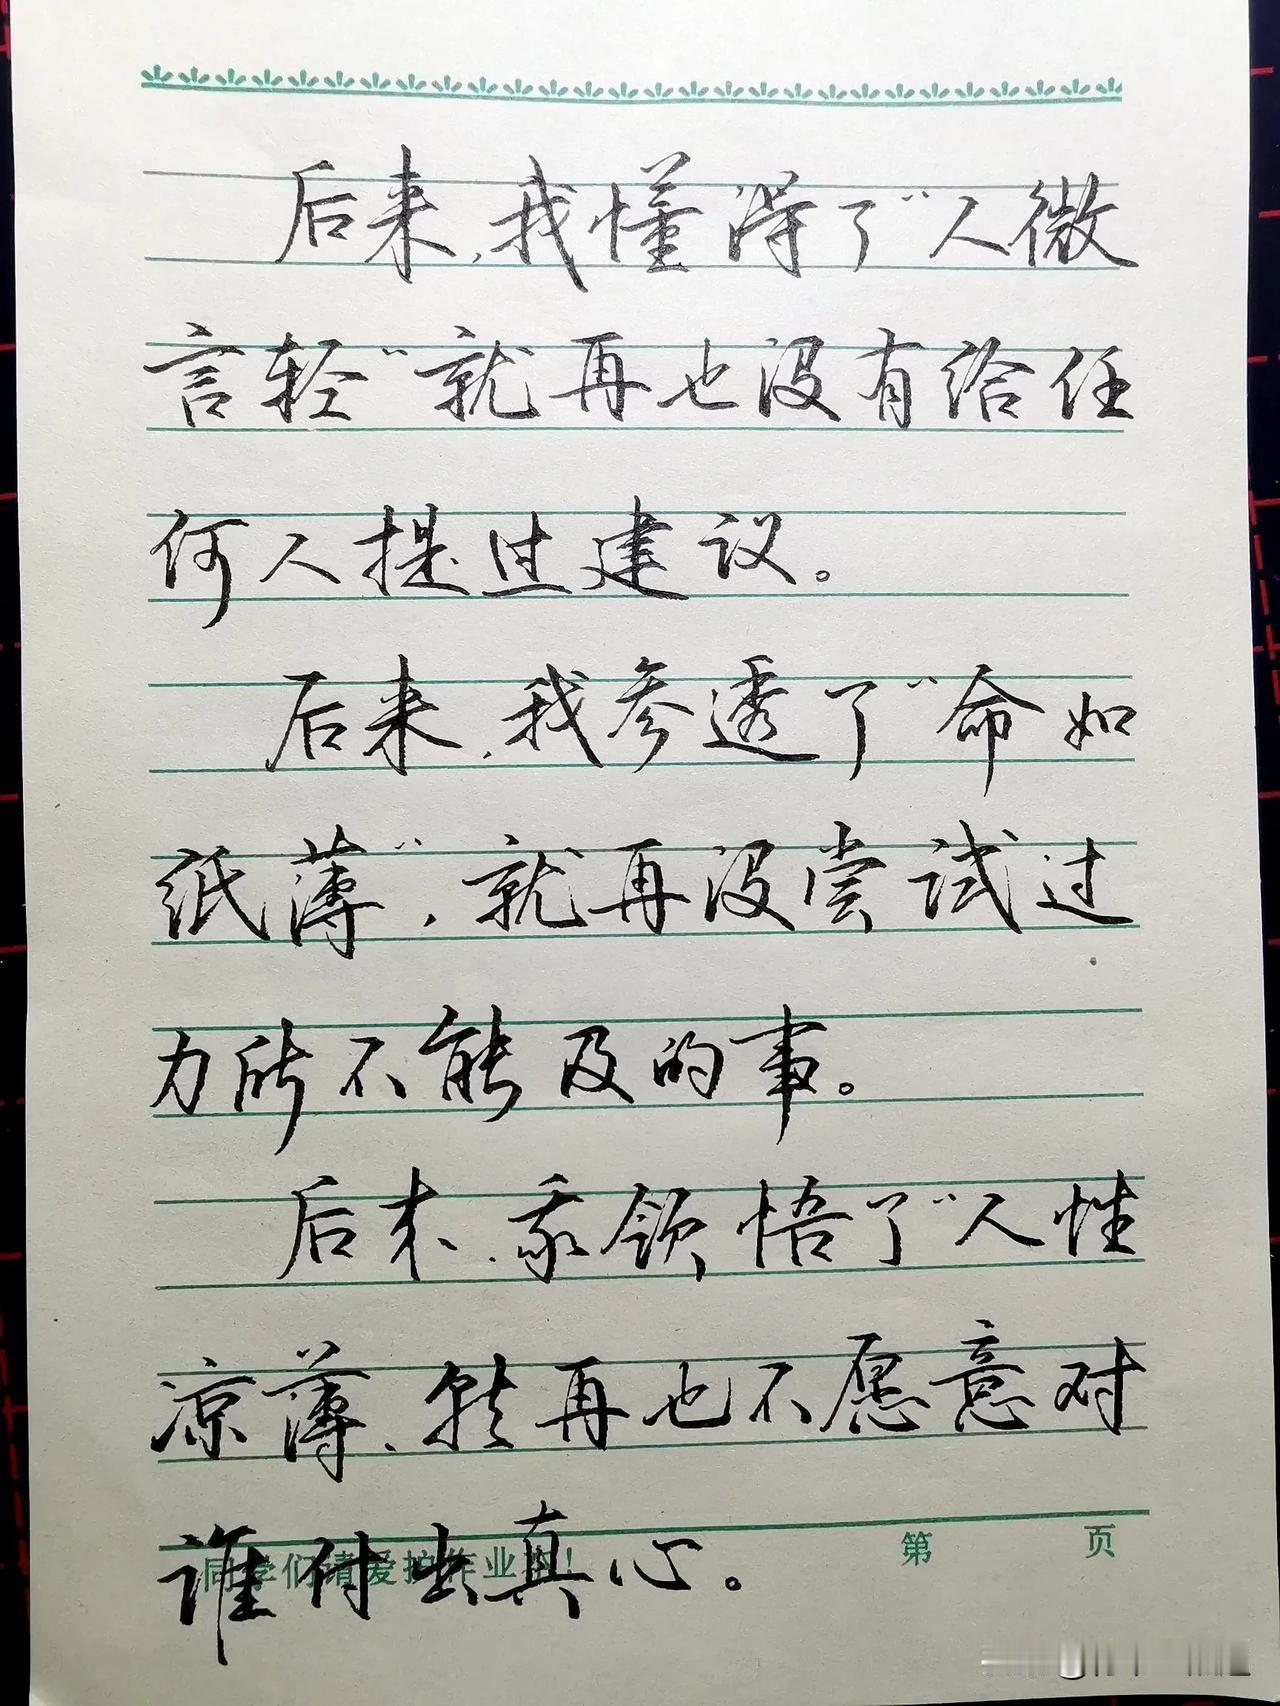 后来,我懂得了“人微
言轻”就再也没有给任
何人提过建议。
后来,我参透了“命如
纸薄”,就再没尝试过
力所不能及的事。
后来,我领悟了“人性
凉薄、就再也不愿意对
谁付出真心。
同学们请爱护作业! 第 页